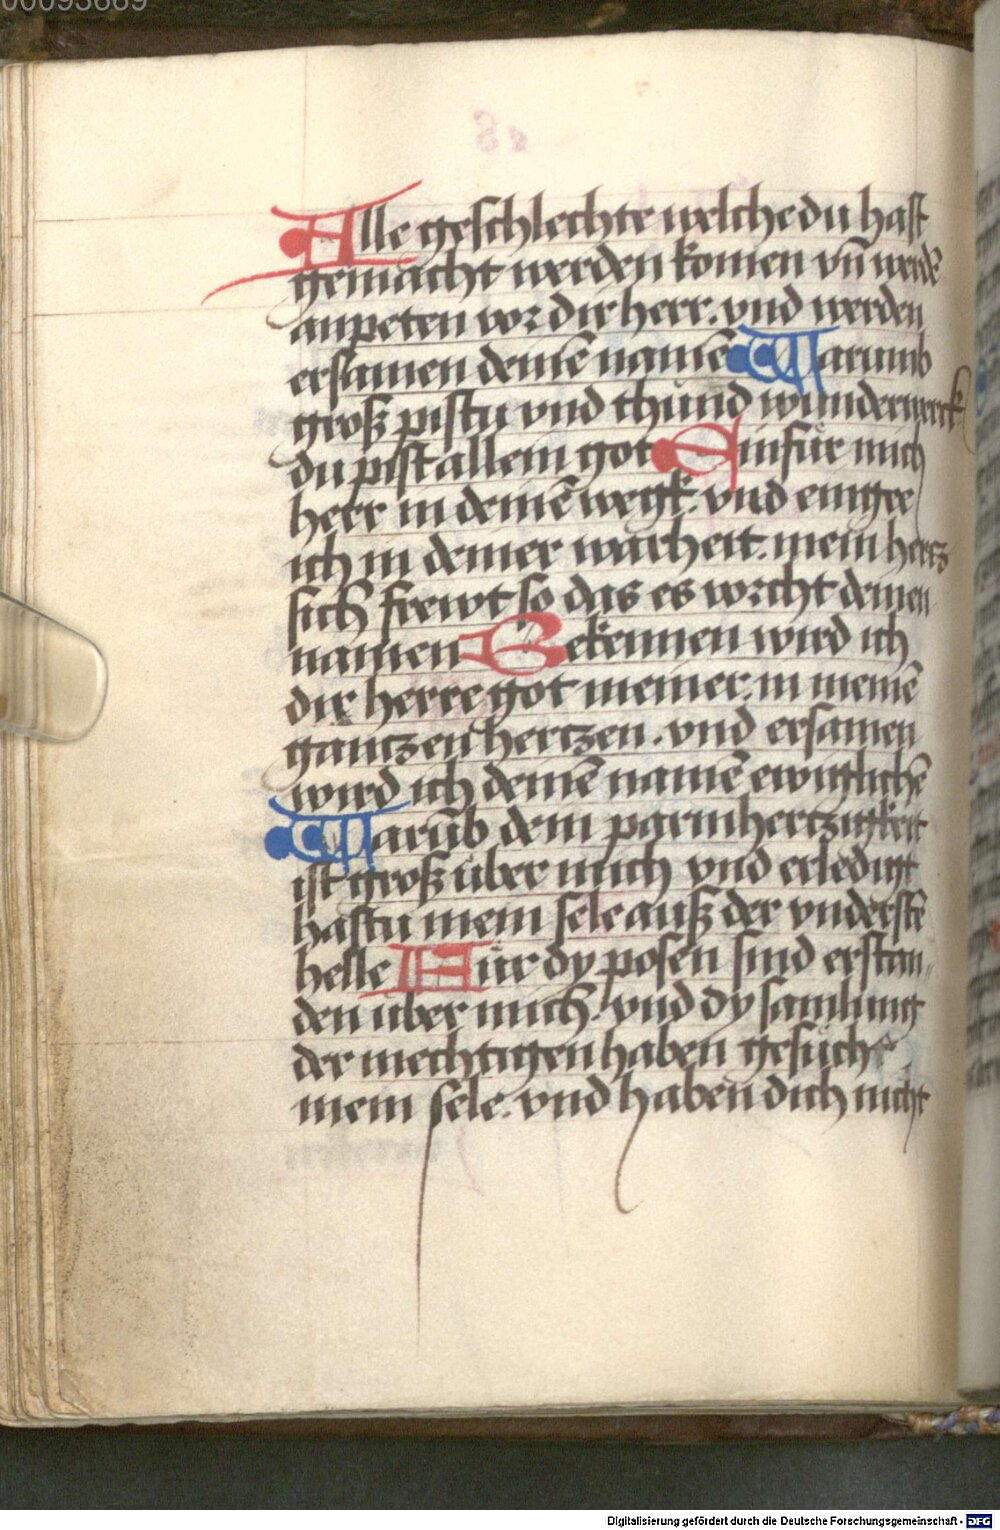 00093669
Alle geschlechte welche du hast
gemacht werden komen vn̄ werdē
anpeten vor dir herr. vnd werden
ersamen deinē namē Warumb
groß pistu vnd thund wunderwerck
du pist allein got Einfür mich
herr in deinē wegk. vnd eingee
ich in deiner warheit. mein hertz
sich frewt so das es vorcht deinen
namen Bekennen wird ich
dir herre got meiner. in meinē
gantzen hertzen. vnd ersamen
wird ich deinē namē ewiglichē
Warūb dein parmhertzigkeit
ist groß über mich vnd erledigt
hastu mein sele auß der vnderstē
helle Wür dy posen sind erstan„
den über mich. vnd dy samlung
der mechtigen haben gesücht
mein sele. vnd haben dich nicht
Digitalisierung gefördert durch die Deutsche Forschungsgemeinschaft - DFG